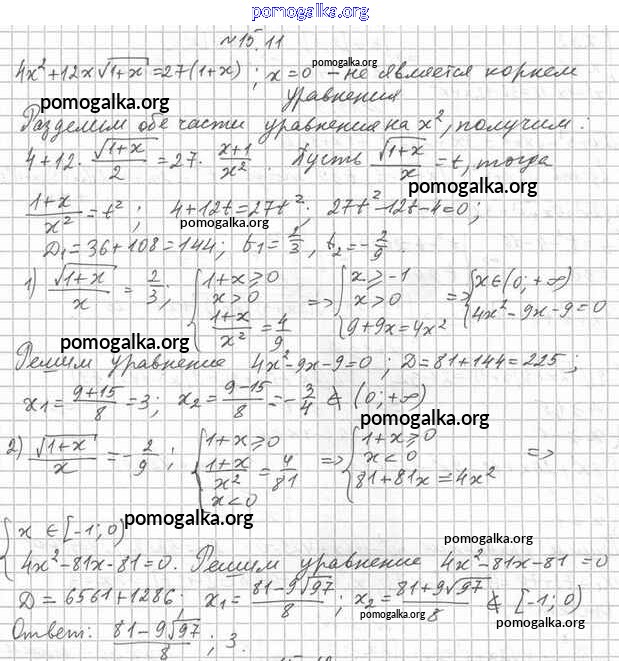 pomogalka.org
№15.11
4x²+12x√(1+x)=27(1+x) ; x=0 – не является корнем
pomogalka.org
уравнения
pomogalka.org
Разделим обе части уравнения на x², получим:
pomogalka.org
4+12·√(1+x)/2=27·(x+1)/x². Пусть √(1+x)/x=t, тогда
pomogalka.org
(1+x)/x²=t²; 4+12t=27t²; 27t²-12t-4=0;
D₁=36+108=144; t₁=2/3, t₂=-2/9.
1) √(1+x)/x=2/3; {1+x≥0 x>0 (1+x)/x²=4/9 => {x≥-1 x>0 9+9x=4x² => {x∈(0;+∞) 4x²-9x-9=0
pomogalka.org
Решим уравнение 4x²-9x-9=0; D=81+144=225;
x₁=(9+15)/8=3; x₂=(9-15)/8=-3/4 ∉ (0;+∞)
pomogalka.org
2) √(1+x)/x=-2/9; {1+x≥0 (1+x)/x²=4/81 x<0 => {1+x≥0 x<0 81+81x=4x² =>
pomogalka.org
{x∈[-1;0)
pomogalka.org
4x²-81x-81=0. Решим уравнение 4x²-81x-81=0
pomogalka.org
D=6561+1286; x₁=(81-9√97)/8; x₂=(81+9√97)/8 ∉ [-1;0)
pomogalka.org
Ответ: (81-9√97)/8; 3.